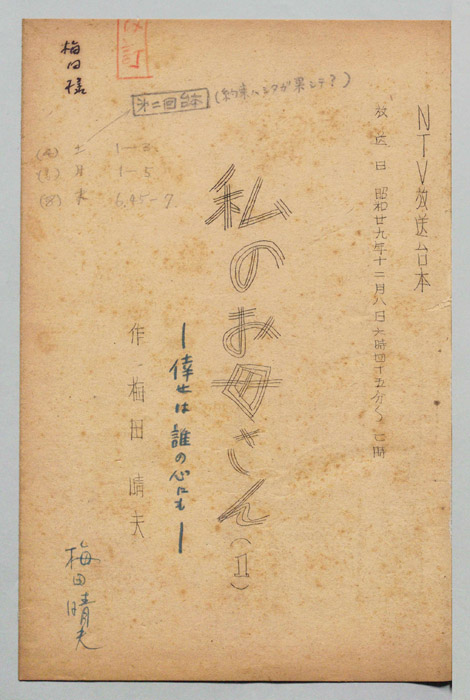 NTV放送台本
放送日 昭和廿九年十二月八日六時四十五分
改訂
梅田様
第二回台本
(約束ハシタガ果シテ?)
土 1-3
月 1-5
水 6.45-7
私のお母さん(1)
―倖せは誰の心にも―
作 梅田晴夫
梅田晴夫